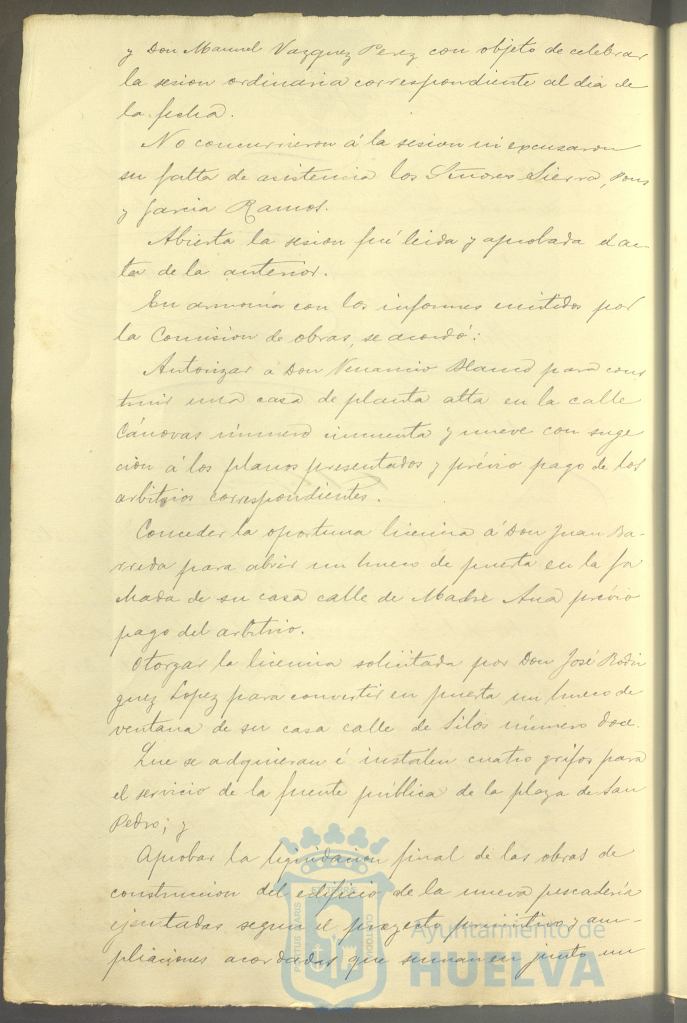 y Don Manuel Vazquez Perez con objeto de celebrar
la sesion ordinaria correspondiente al dia de
la fecha.
No concurrieron á la sesion ni excusaron
su falta de asistencia los Señores Sierra, Pons
y Garcia Ramos.
Abierta la sesion fué leida y aprobada el ac-
ta de la anterior.
En armonía con los informes emitidos por
la Comision de obras, se acordó:
Autorizar á Don Venancio Blanco para cons
truir una casa de planta alta en la calle
Cánovas número cincuenta y nueve con suge
cion á los planos presentados y prévio pago de los
arbitrios correspondientes.
Conceder la oportuna licencia á Don Juan Ba-
rreda para abrir un hueco de puerta en la fa
chada de su casa calle de Madre Ana prévio
pago del arbitrio.
Otorgar la licencia solicitada por Don José Rodri
guez Lopez para convertir en puerta un hueco de
ventana de su casa calle de Silos número doce.
Que se adquieran é instalen cuatro grifos para
el servicio de la fuente pública de la plaza de San
Pedro; y
Aprobar la liquidacion final de las obras de
construccion del edificio de la nueva pescadería
ejecutadas segun el proyecto primitivo y am-
pliaciones acordadas que suman en junto un
Ayuntamiento de
HUELVA